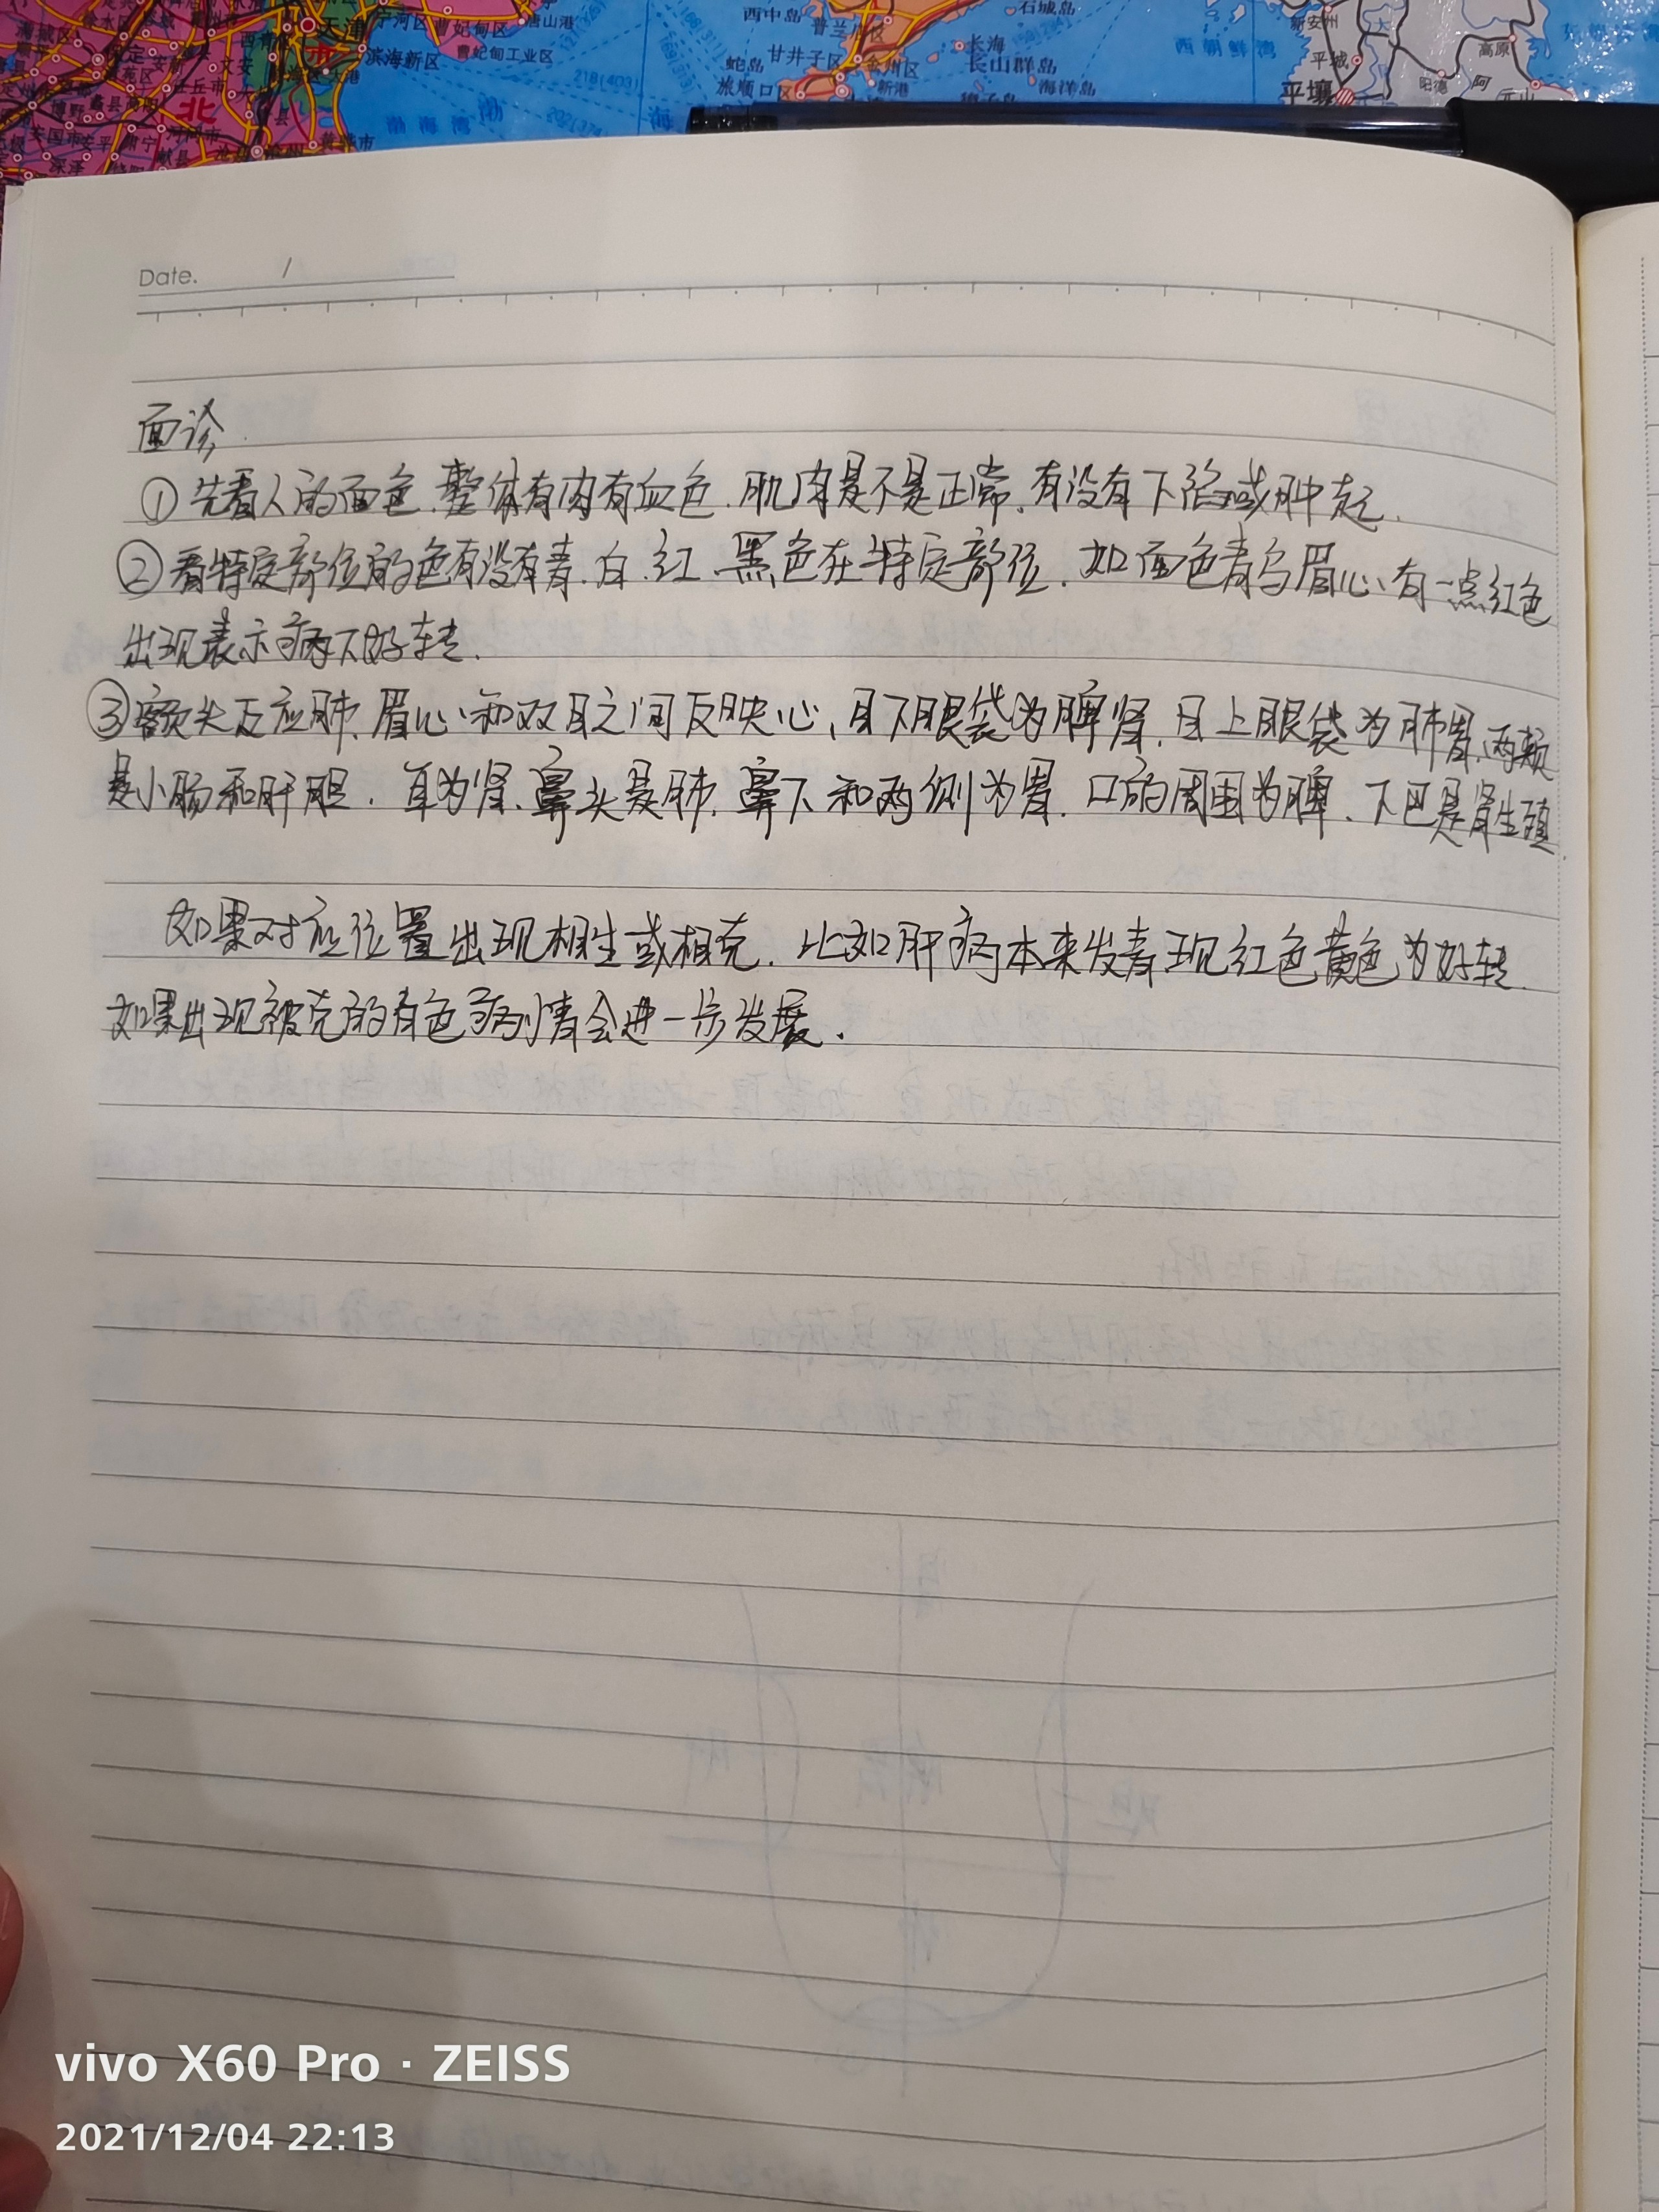 西中岛 普兰店 石城岛 新安州 西朝鲜湾
天津 宁河区 曹妃甸区 唐山港 蛇岛 甘井子区 金州区 长海 长山群岛 平城 高原
滨海新区 曹妃甸工业区 旅顺口区 新港 獐子岛 海洋岛 平壤 阳德 元山
保定 文安 任丘市 北 218(403) 渤海湾 渤 海
蠡县 安国市 安平 肃宁 河间市 献县 沧州 黄骅市 深泽 202(374)
Date. /
面诊
①先看人的面色.整体有肉有血色.肌肉是不是正常.有没有下陷或肿起.
②看特定部位的色有没有青.白.红.黑色在特定部位.如面色青乌眉心有一点红色
出现表示病下好转.
③额头反应肺.眉心和双目之间反映心,目下眼袋为脾肾.目上眼袋为肺胃.两颊
是小肠和肝胆.耳为肾.鼻头是肺.鼻下和两侧为胃.口的周围为脾.下巴是肾生殖.
如果对应位置出现相生或相克.比如肝病本来发青现红色黄色为好转.
如果出现被克的有色病情会进一步发展.
vivo X60 Pro · ZEISS
2021/12/04 22:13